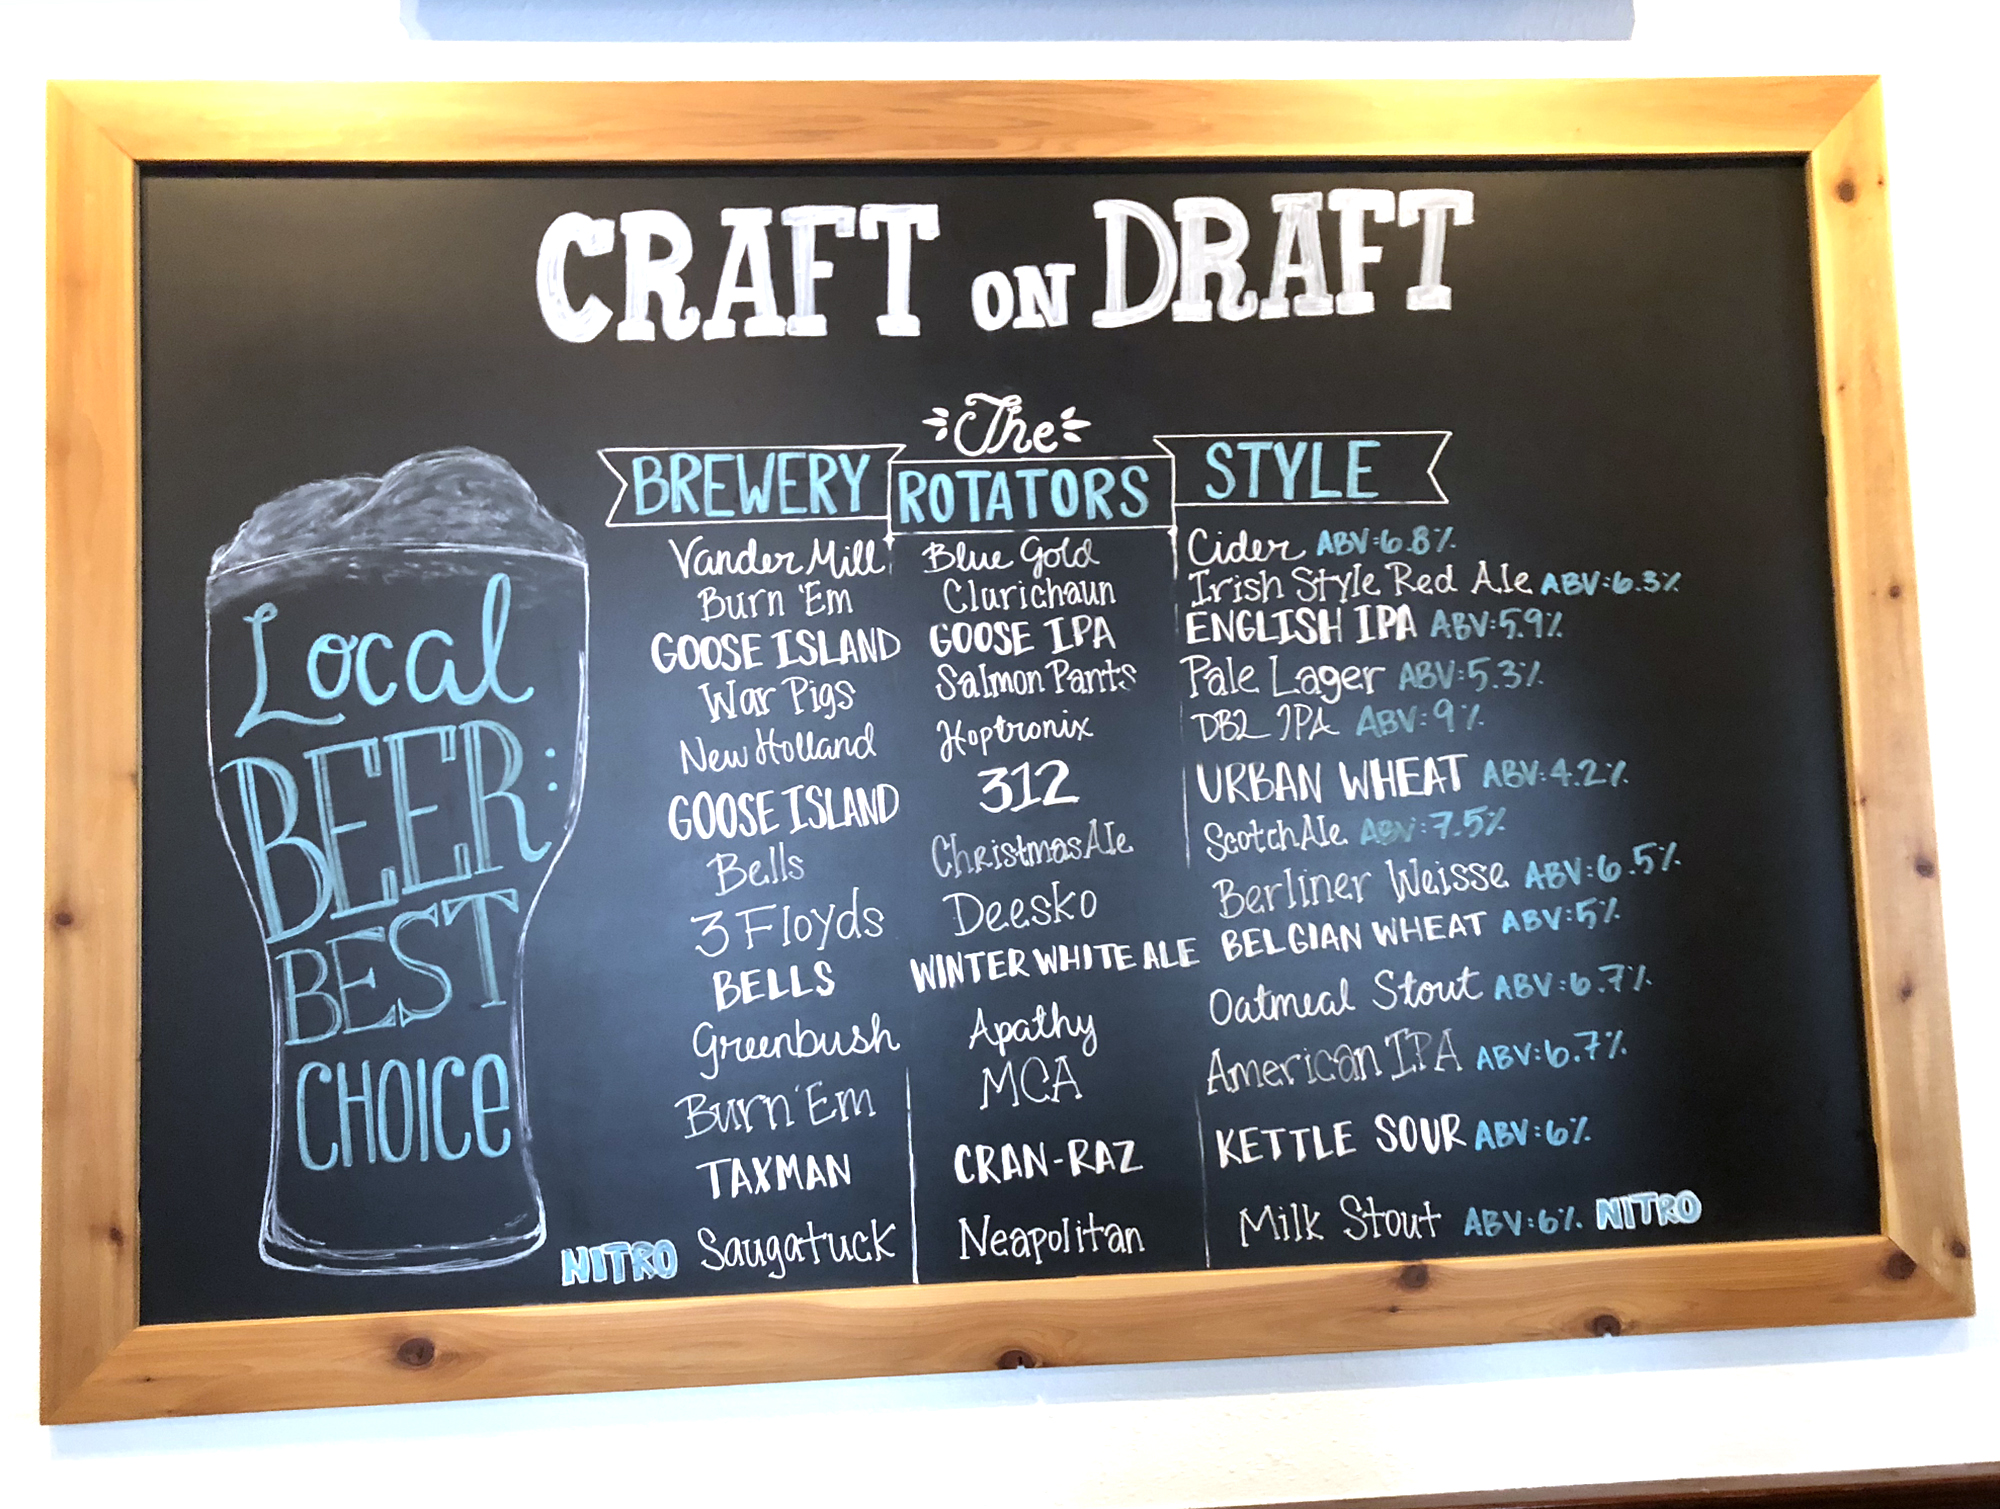 CRAFT ON DRAFT
The
BREWERY ROTATORS STYLE
Vander Mill Blue Gold Cider ABV:6.8%
Burn 'Em Clurichaun Irish Style Red Ale ABV:6.3%
GOOSE ISLAND GOOSE IPA ENGLISH IPA ABV:5.9%
War Pigs Salmon Pants Pale Lager ABV:5.3%
New Holland Hoptronix DBL IPA ABV:9%
GOOSE ISLAND 312 URBAN WHEAT ABV:4.2%
Bells Christmas Ale Scotch Ale ABV:7.5%
3 Floyds Deesko Berliner Weisse ABV:6.5%
BELLS WINTER WHITE ALE BELGIAN WHEAT ABV:5%
Greenbush Apathy Oatmeal Stout ABV:6.7%
Burn 'Em MCA American IPA ABV:6.7%
TAXMAN CRAN-RAZ KETTLE SOUR ABV:6%
NITRO Saugatuck Neapolitan Milk Stout ABV:6% NITRO
Local
BEER:
BEST
CHOICE